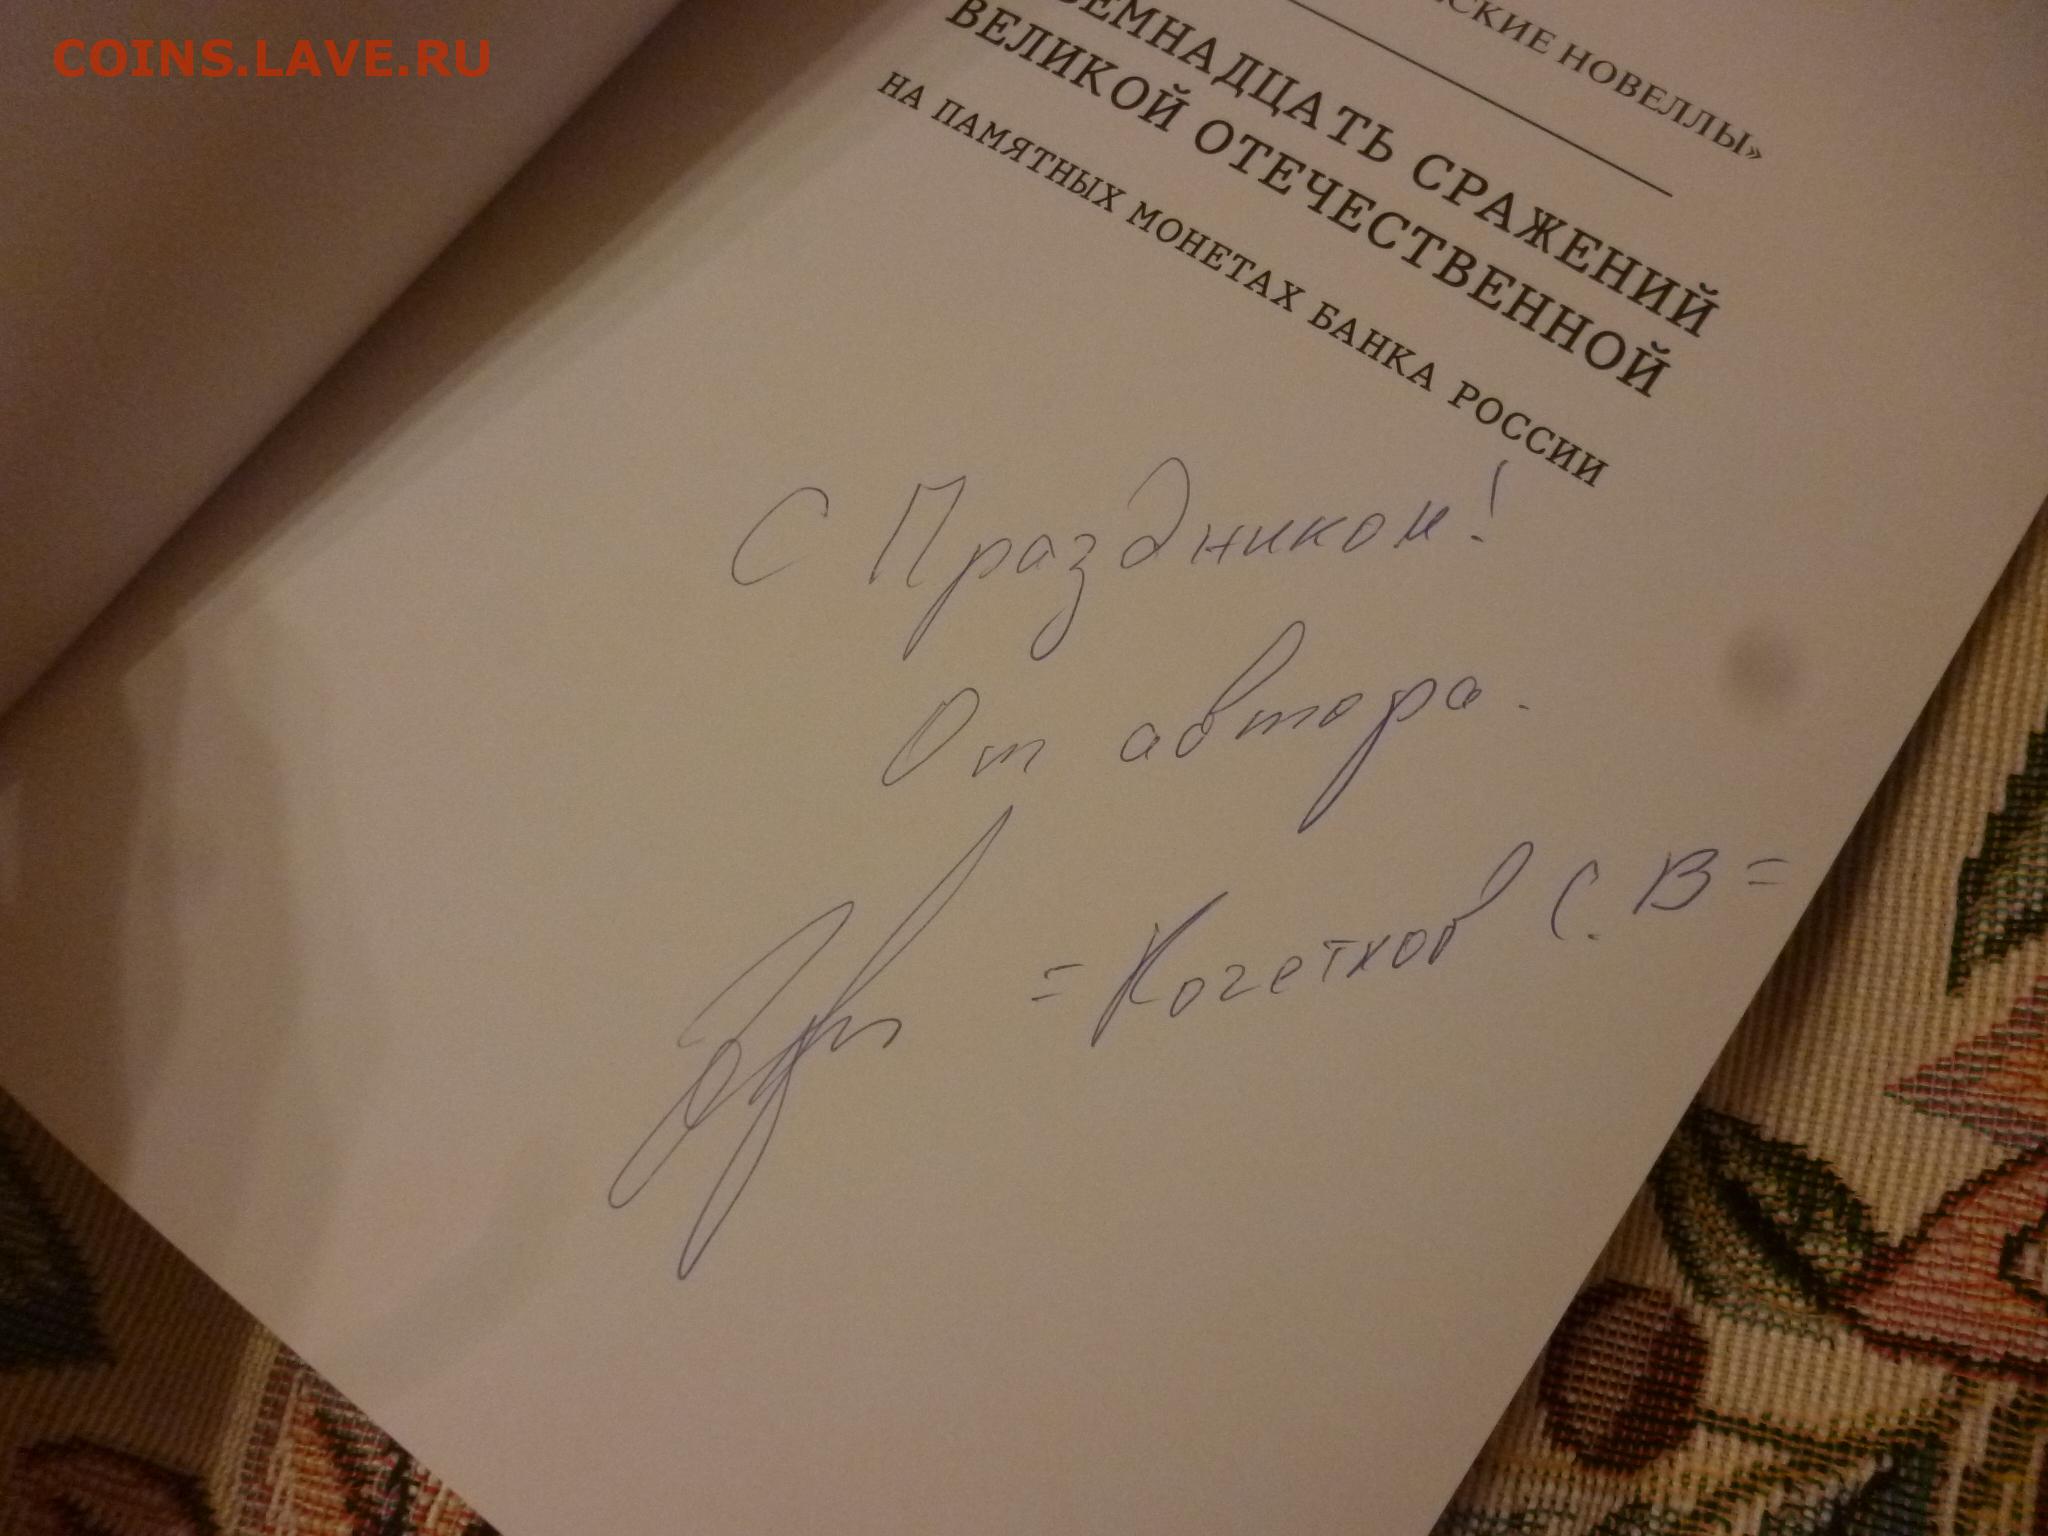 COINS.LAVE.RU
НОВЕЛЛЫ»
СРАЖЕНИЙ
ВЕЛИКОЙ ОТЕЧЕСТВЕННОЙ
НА ПАМЯТНЫХ МОНЕТАХ БАНКА РОССИИ
С Праздником!
От автора.
= Кочетков С. В =